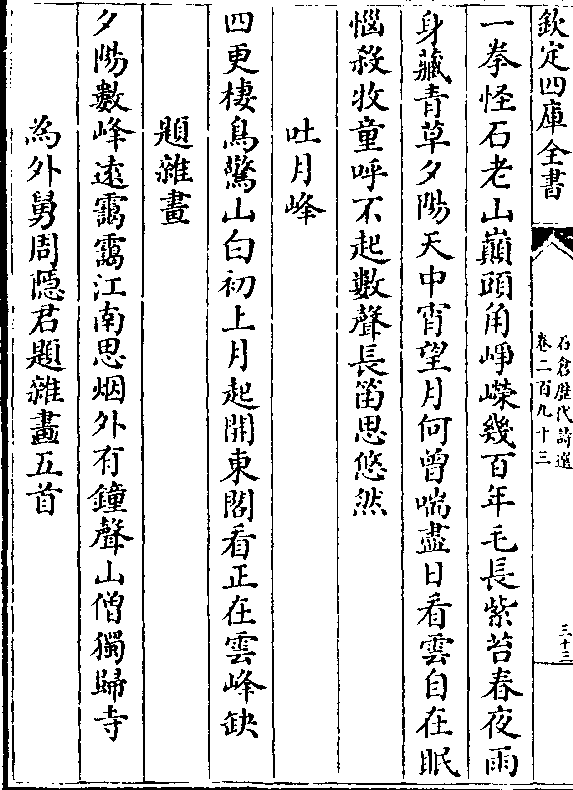 欽定四庫全書
石倉歴代詩選
卷二百九十三
三十三
一拳怪石老山巔頭角崢嶸幾百年毛長紫苔春夜雨
身藏青草夕陽天中宵望月何曾喘盡日看雲自在眠
惱殺牧童呼不起數聲長笛思悠然
吐月峰
四更棲鳥驚山白初上月起開東閣看正在雲峰缺
題雜畫
夕陽數峰遠靄靄江南思烟外有鐘聲山僧獨歸寺
為外舅周隱君題雜畫五首